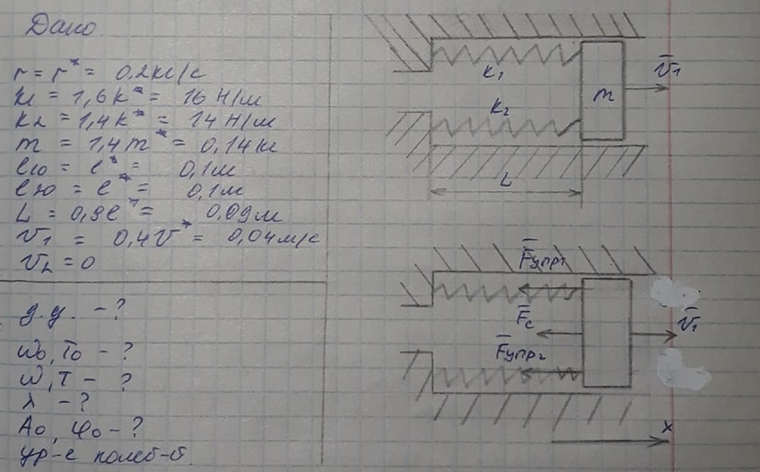 Дано
r = r* = 0.2кг/с
k1 = 1,6k* = 16 Н/м
k2 = 1,4k* = 14 Н/м
m = 1,4m* = 0,14 кг
l10 = l* = 0,1м
l20 = l* = 0,1м
L = 0,9l* = 0,09м
v1 = 0,4v* = 0,04м/с
v2 = 0
д.у. - ?
ω0, T0 - ?
ω, T - ?
λ - ?
A0, φ0 - ?
ур-е колеб-й
k1
k2
m
v̄1
L
F̄упр1
F̄с
F̄упр2
v̄1
x